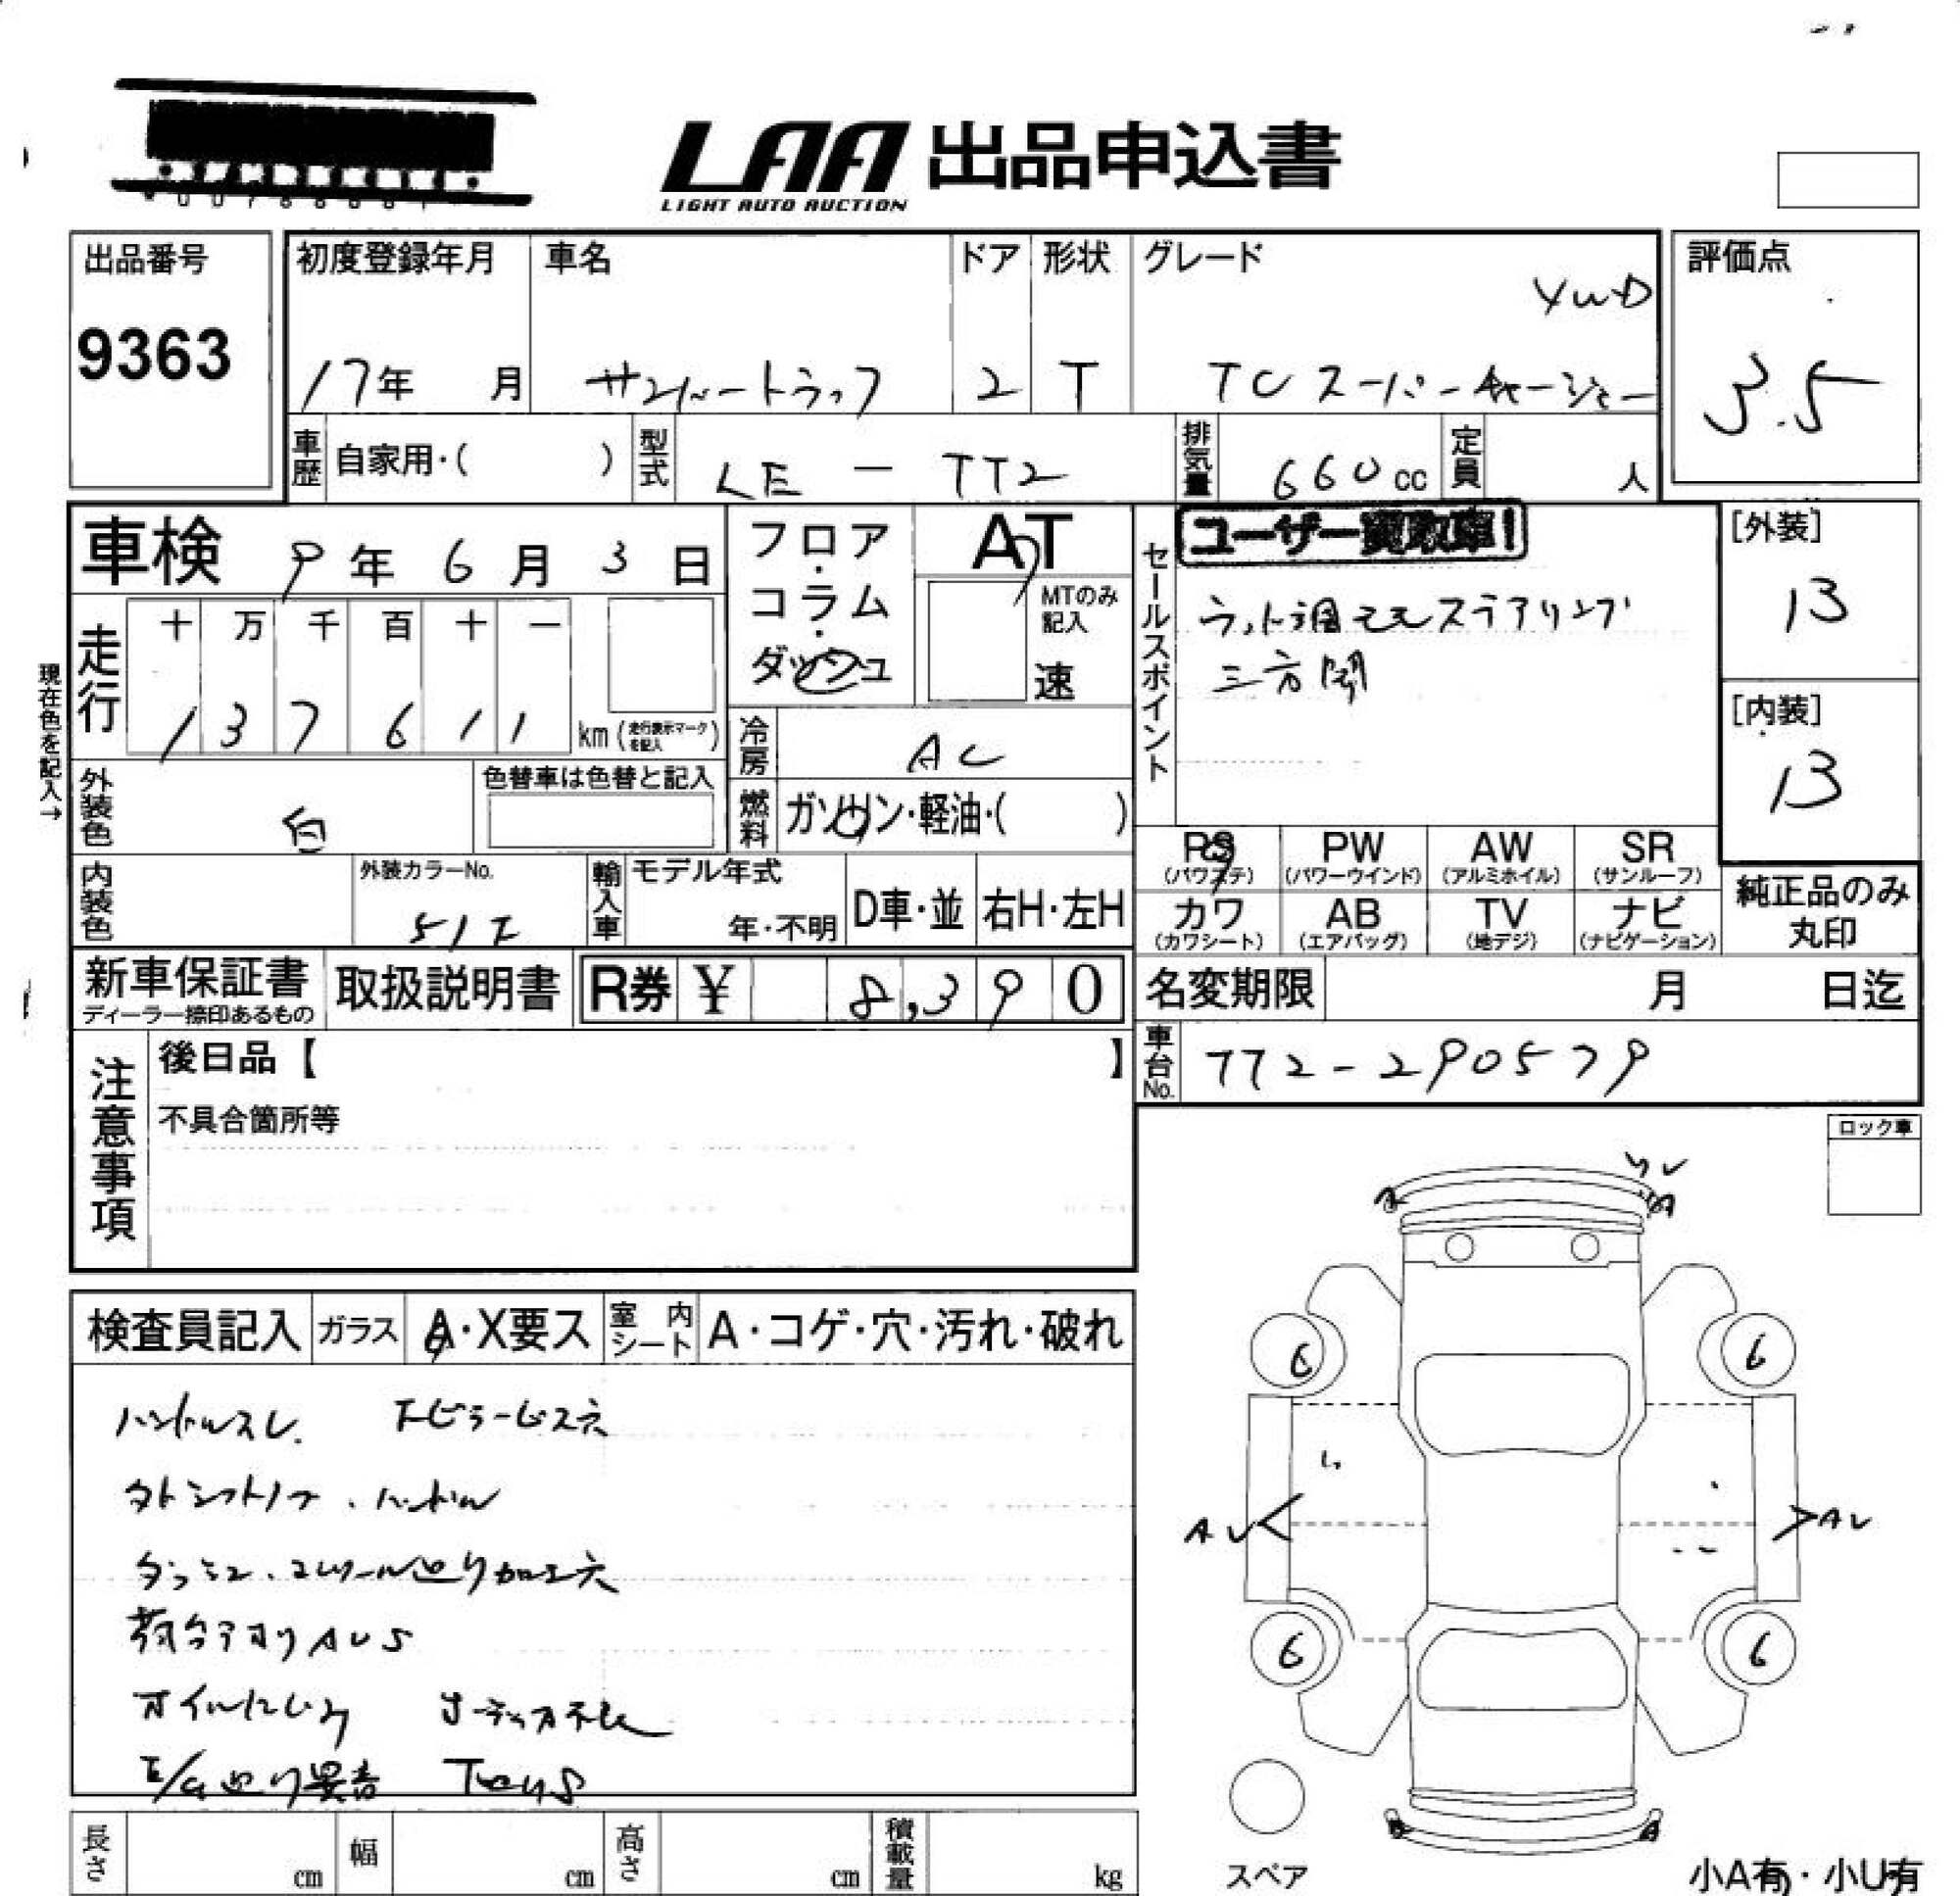 LAA 出品申込書
LIGHT AUTO AUCTION
出品番号
9363
初度登録年月
17年 月
車名
サンバートラック
ドア
2
形状
T
グレード
4WD
TC スーパーチャージャー
評価点
3.5
車歴 自家用・( )
型式 LE - TT2
排気量 660 cc
定員 人
車検 9年 6月 3日
フロア・コラム・ダッシュ
AT
MTのみ記入
速
セールスポイント
ユーザー買取車!
ウッド調 ステアリング
三方開
[外装]
13
[内装]
13
現在色を記入→
走行
十 万 千 百 十 一
1 3 7 6 1 1 km (走行表示マークを記入)
冷房 AC
外装色 白
色替車は色替と記入
燃料 ガソリン・軽油・( )
RS (パワステ) PW (パワーウインド) AW (アルミホイル) SR (サンルーフ)
カワ (カワシート) AB (エアバッグ) TV (地デジ) ナビ (ナビゲーション)
純正品のみ丸印
内装色
外装カラーNo.
51Z
輸入車 モデル年式 年・不明
D車・並 右H・左H
新車保証書
ディーラー捺印あるもの
取扱説明書
R券 ¥ 8,390
名変期限 月 日迄
車台No. TT2-290579
注意事項
後日品【 】
不具合箇所等
ロック車
検査員記入 ガラス A・X要ス 室内シート A・コゲ・穴・汚れ・破れ
ハンドルスレ. Fピラービス穴
外シフトノブ . ハンドル
ダッシュ . コンソール廻り加工穴
荷台アオリAUS
オイルにじみ オーディオ不良
E/G廻り異音
A A
6 6
AU AU
6 6
A A
スペア
小A有・小U有
長さ cm 幅 cm 高さ cm 積載量 kg